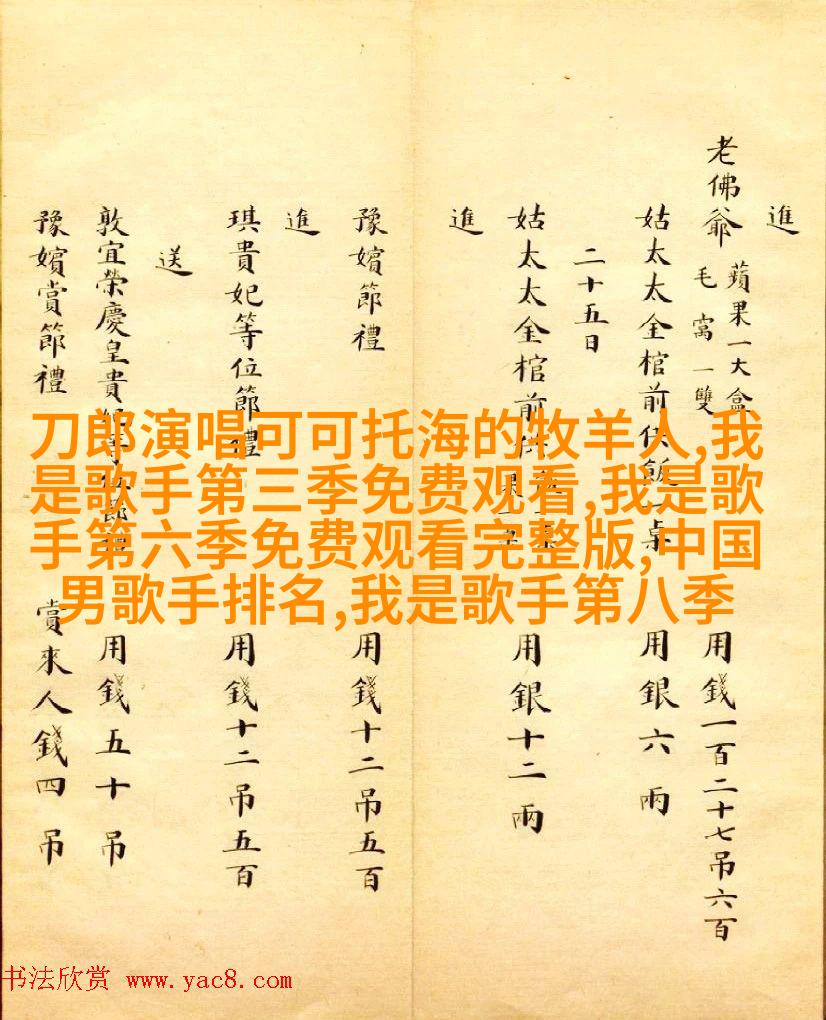 進
老佛爺 蘋果一大盒
毛窩一雙 用錢一百二十七吊六百
姑太太金棺前供飯一桌 用銀六兩
二十五日
姑太太金棺前供 用銀十二兩
進
豫嬪節禮 用錢十二吊五百
進
琪貴妃等位節禮 用錢十二吊五百
送
敦宜榮慶皇貴妃等位節禮 用錢五十吊
豫嬪賞節禮 賞來人錢四吊
刀郎演唱可可托海的牧羊人,我
是歌手第三季免费观看,我是歌
手第六季免费观看完整版,中国
男歌手排名,我是歌手第八季
书法欣赏 www.yac8.com